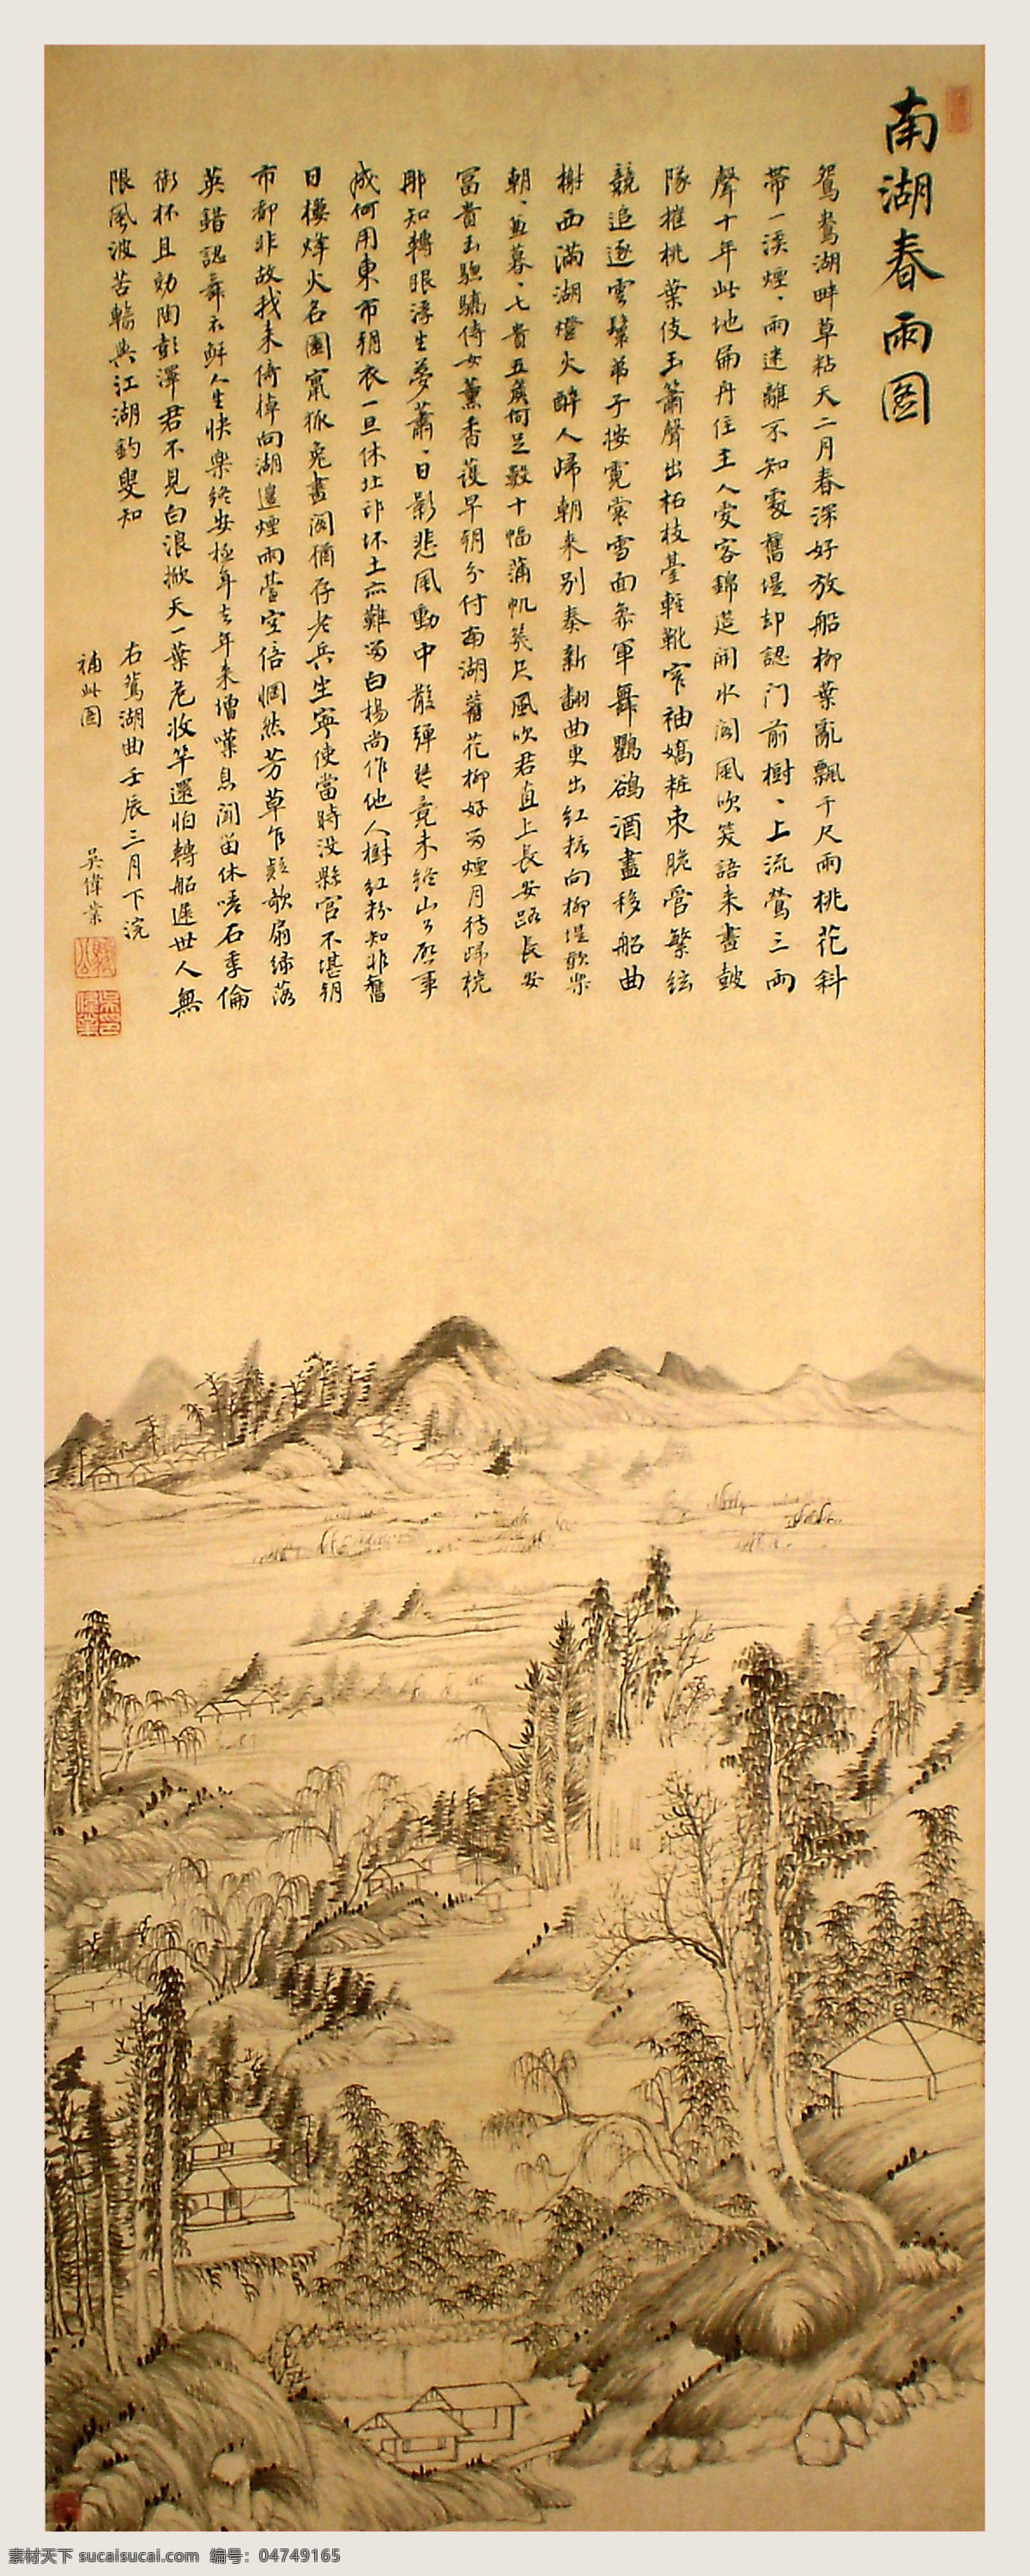 南湖春雨图
鴛鴦湖畔草粘天二月春深好放船柳葉亂飄千尺雨桃花斜
帶一溪煙、雨迷離不知處舊堤却認門前樹、上流鶯三兩
聲十年此地扁舟住主人愛客錦筵開水閣風吹笑語来畫鼓
隊催桃葉伎玉簫聲出柘枝臺輕靴窄袖嬌粧束脆管繁絃
競追逐雲鬟弟子按霓裳雪面參軍舞鸜鵒酒盡移船曲
榭西滿湖燈火醉人歸朝来别奏新翻曲更出紅粧向柳堤歌樂
朝、兼暮、七貴五侯何足數十幅蒲帆幾尺風吹君直上長安路長安
富貴玉驄驕侍女薰香護早朝分付南湖舊花柳好留煙月待歸橈
那知轉眼浮生夢蕭、日影悲風動中散彈琴竟未終山公啓事
成何用東市朝衣一旦休北邙坏土亦難留白楊尚作他人樹紅粉知非舊
日樓烽火名園竄狐兔畫閣猶存老兵怒寧使當時没縣官不堪朝
市都非故我来倚棹向湖邊煙雨臺空倍惘然芳草乍疑歌扇綠落
英錯認舞衣鮮人生快樂終安極年去年来增嘆息聞笛休嗟石季倫
銜杯且効陶彭澤君不見白浪掀天一葉危收竿還怕轉船遲世人無
限風波苦輸與江湖釣叟知
右鴛湖曲壬辰三月下浣
補此圖
吳偉業
素材天下 sucaisucai.com 编号：04749165